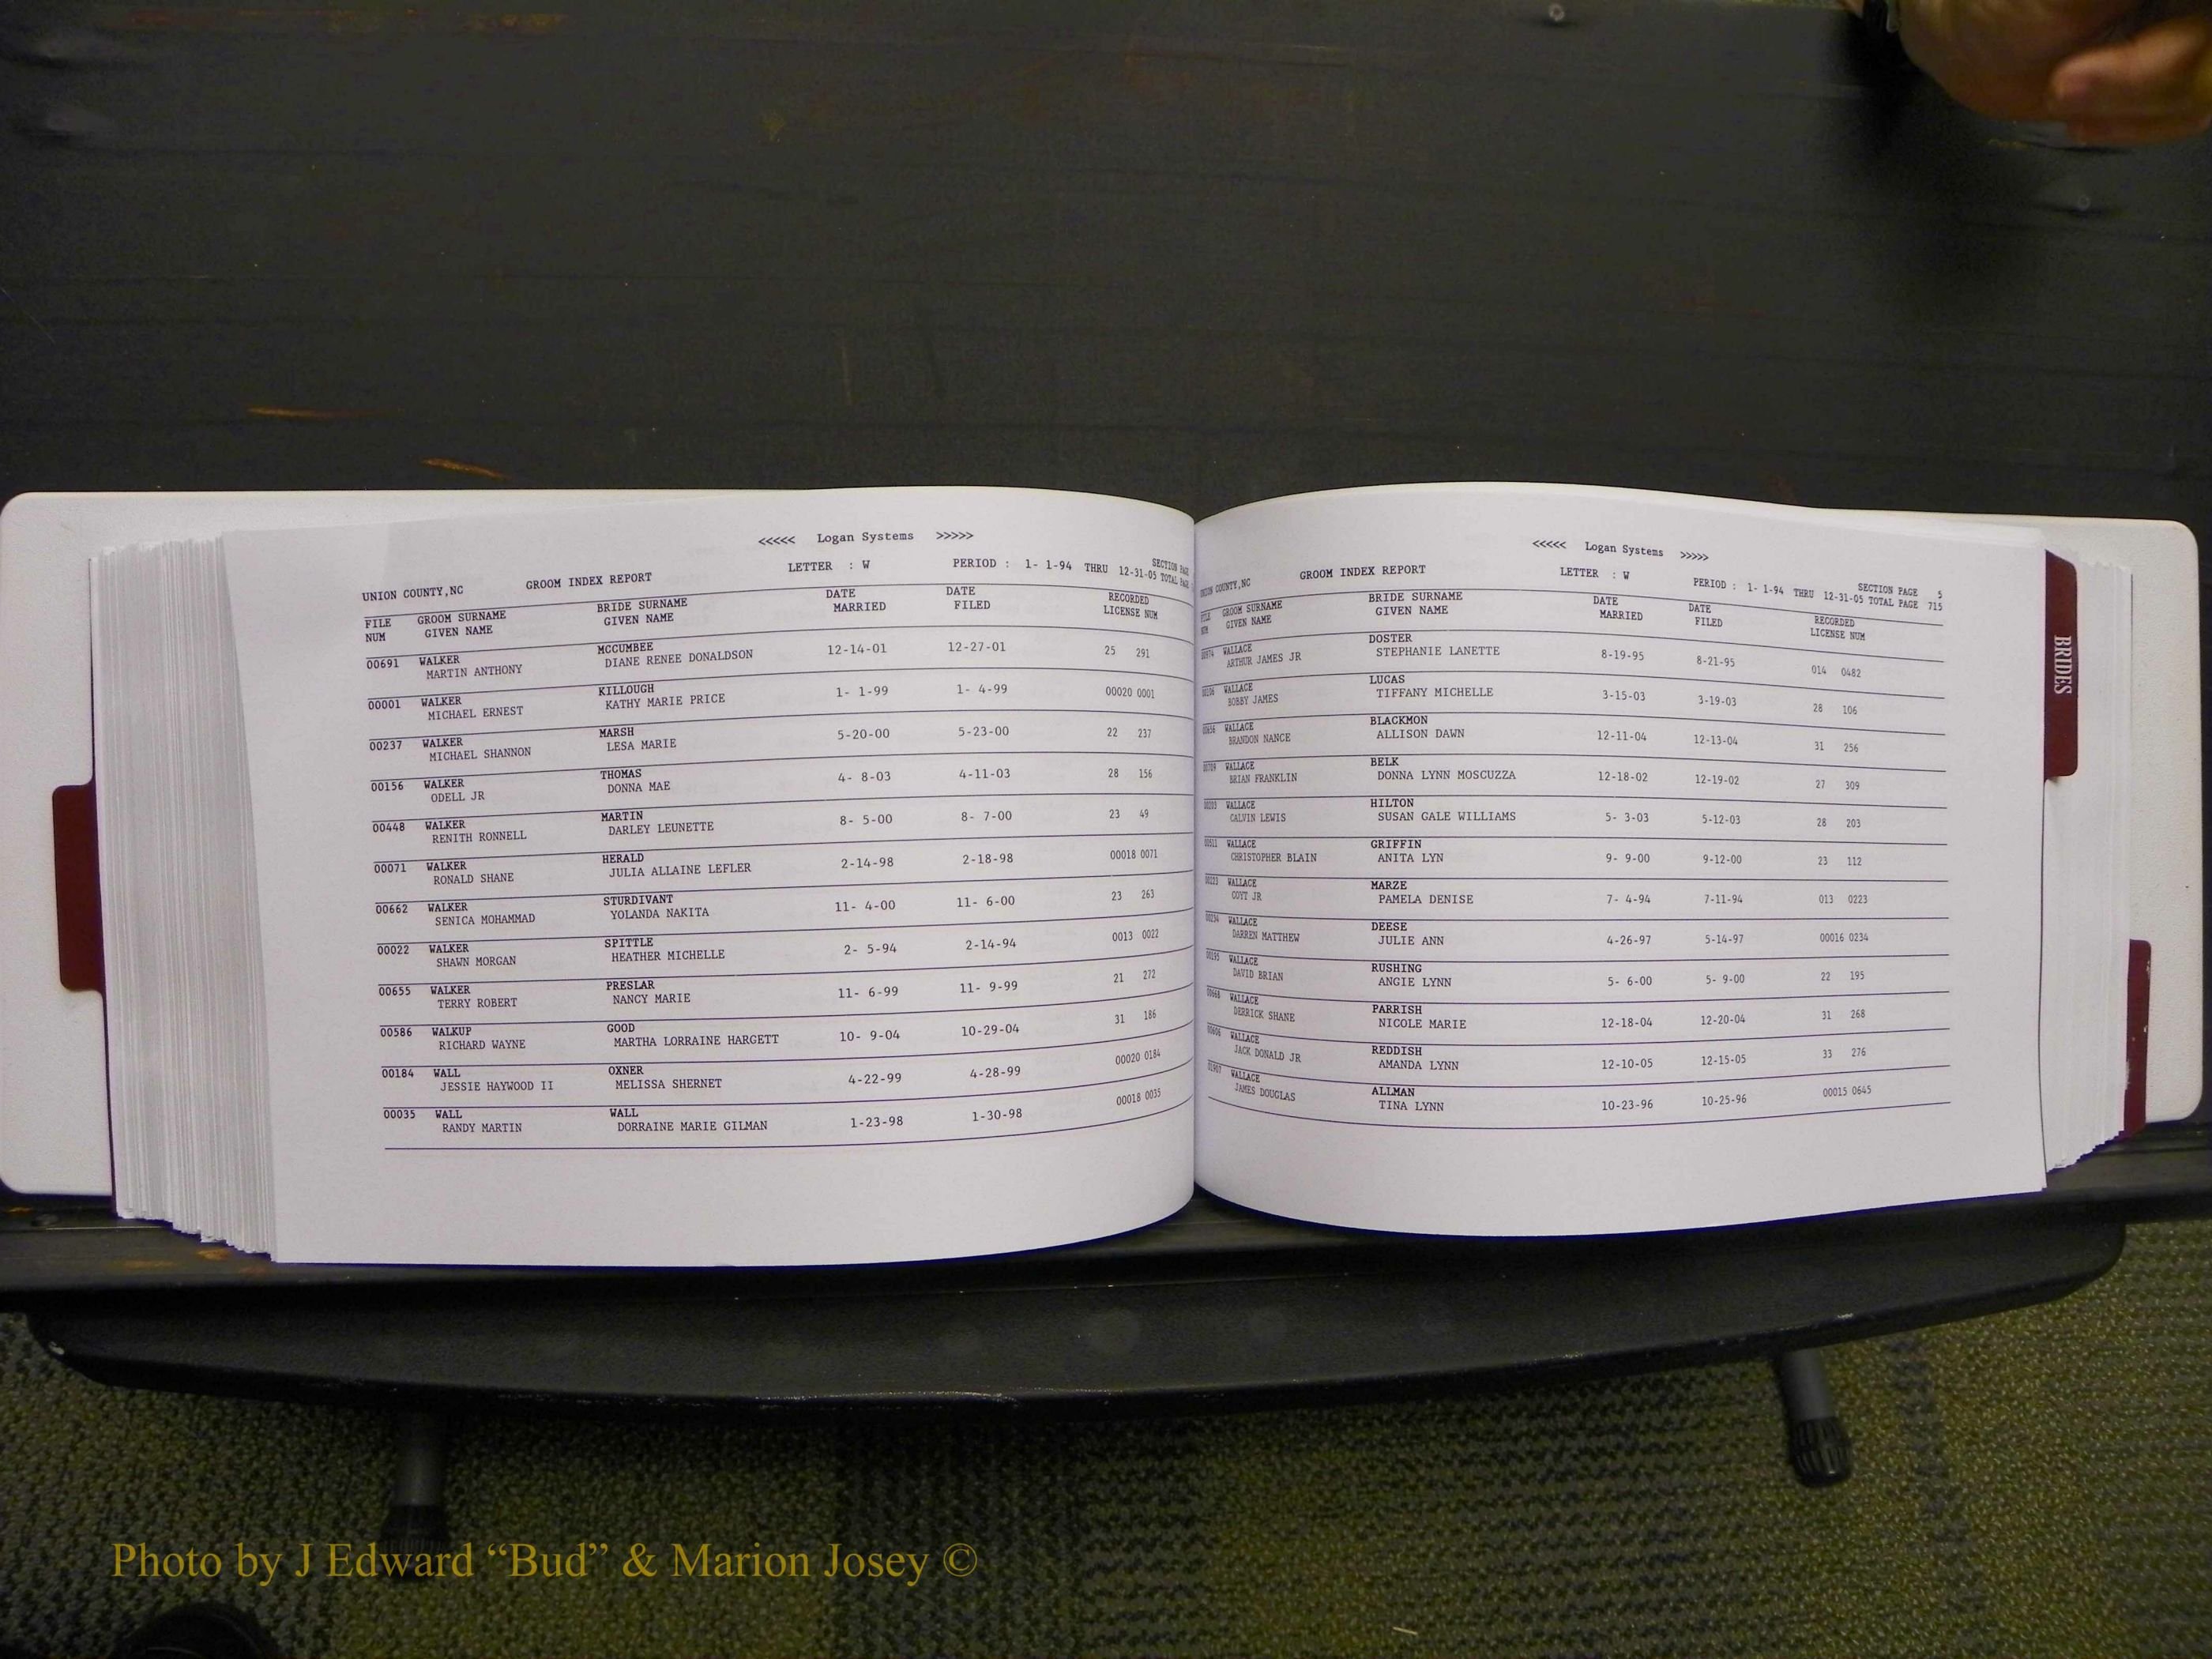 <<<<< Logan Systems >>>>>
UNION COUNTY,NC GROOM INDEX REPORT LETTER : W PERIOD : 1- 1-94 THRU 12-31-05 SECTION PAGE
TOTAL PAGE
FILE GROOM SURNAME BRIDE SURNAME DATE DATE RECORDED
NUM GIVEN NAME GIVEN NAME MARRIED FILED LICENSE NUM
00691 WALKER MCCUMBEE 12-14-01 12-27-01 25 291
MARTIN ANTHONY DIANE RENEE DONALDSON
00001 WALKER KILLOUGH 1- 1-99 1- 4-99 00020 0001
MICHAEL ERNEST KATHY MARIE PRICE
00237 WALKER MARSH 5-20-00 5-23-00 22 237
MICHAEL SHANNON LESA MARIE
00156 WALKER THOMAS 4- 8-03 4-11-03 28 156
ODELL JR DONNA MAE
00448 WALKER MARTIN 8- 5-00 8- 7-00 23 49
RENITH RONNELL DARLEY LEUNETTE
00071 WALKER HERALD 2-14-98 2-18-98 00018 0071
RONALD SHANE JULIA ALLAINE LEFLER
00662 WALKER STURDIVANT 11- 4-00 11- 6-00 23 263
SENICA MOHAMMAD YOLANDA NAKITA
00022 WALKER SPITTLE 2- 5-94 2-14-94 0013 0022
SHAWN MORGAN HEATHER MICHELLE
00655 WALKER PRESLAR 11- 6-99 11- 9-99 21 272
TERRY ROBERT NANCY MARIE
00586 WALKUP GOOD 10- 9-04 10-29-04 31 186
RICHARD WAYNE MARTHA LORRAINE HARGETT
00184 WALL OXNER 4-22-99 4-28-99 00020 0184
JESSIE HAYWOOD II MELISSA SHERNET
00035 WALL WALL 1-23-98 1-30-98 00018 0035
RANDY MARTIN DORRAINE MARIE GILMAN
<<<<< Logan Systems >>>>>
UNION COUNTY,NC GROOM INDEX REPORT LETTER : W PERIOD : 1- 1-94 THRU 12-31-05 SECTION PAGE 5
TOTAL PAGE 715
FILE GROOM SURNAME BRIDE SURNAME DATE DATE RECORDED
NUM GIVEN NAME GIVEN NAME MARRIED FILED LICENSE NUM
WALLACE DOSTER 8-19-95 8-21-95 014 0482
ARTHUR JAMES JR STEPHANIE LANETTE
00106 WALLACE LUCAS 3-15-03 3-19-03 28 106
BOBBY JAMES TIFFANY MICHELLE
00656 WALLACE BLACKMON 12-11-04 12-13-04 31 256
BRANDON NANCE ALLISON DAWN
WALLACE BELK 12-18-02 12-19-02 27 309
BRIAN FRANKLIN DONNA LYNN MOSCUZZA
00203 WALLACE HILTON 5- 3-03 5-12-03 28 203
CALVIN LEWIS SUSAN GALE WILLIAMS
00511 WALLACE GRIFFIN 9- 9-00 9-12-00 23 112
CHRISTOPHER BLAIN ANITA LYN
00223 WALLACE MARZE 7- 4-94 7-11-94 013 0223
COYT JR PAMELA DENISE
00234 WALLACE DEESE 4-26-97 5-14-97 00016 0234
DARREN MATTHEW JULIE ANN
00195 WALLACE RUSHING 5- 6-00 5- 9-00 22 195
DAVID BRIAN ANGIE LYNN
00668 WALLACE PARRISH 12-18-04 12-20-04 31 268
DERRICK SHANE NICOLE MARIE
WALLACE REDDISH 12-10-05 12-15-05 33 276
JACK DONALD JR AMANDA LYNN
WALLACE ALLMAN 10-23-96 10-25-96 00015 0645
JAMES DOUGLAS TINA LYNN
BRIDES
Photo by J Edward “Bud” & Marion Josey ©